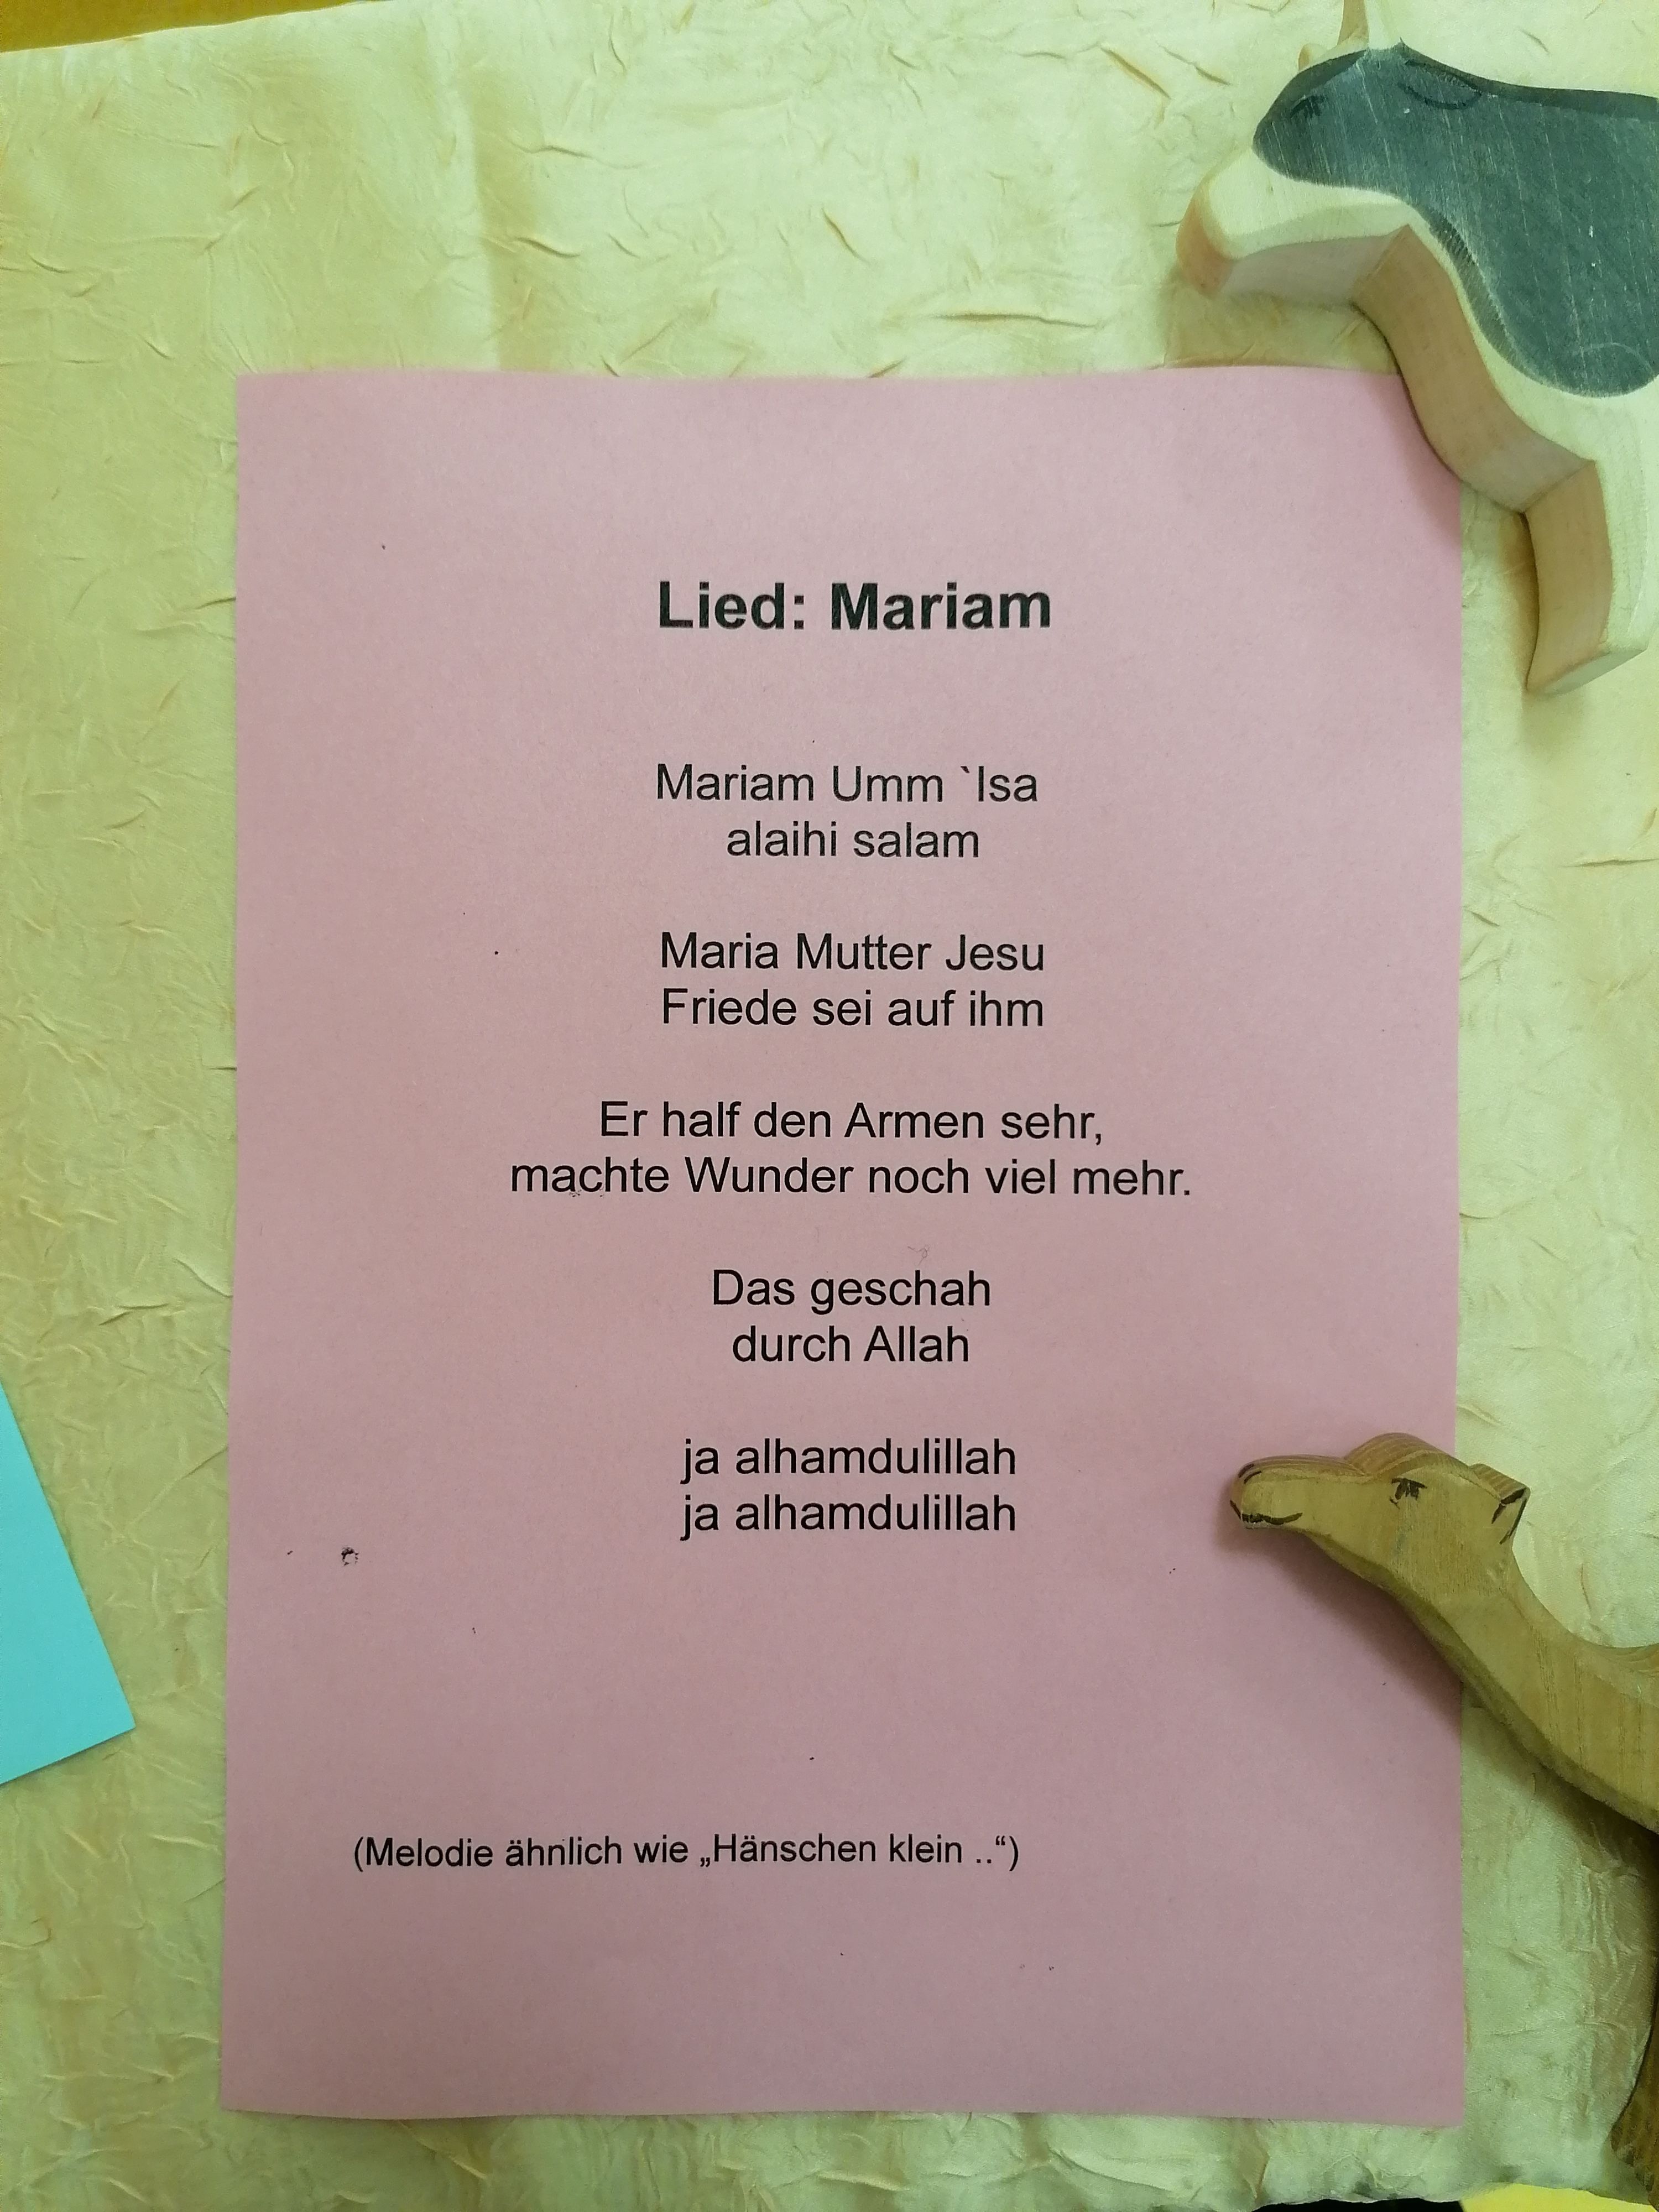 Lied: Mariam
Mariam Umm `Isa
alaihi salam
Maria Mutter Jesu
Friede sei auf ihm
Er half den Armen sehr,
machte Wunder noch viel mehr.
Das geschah
durch Allah
ja alhamdulillah
ja alhamdulillah
(Melodie ähnlich wie „Hänschen klein ..“)